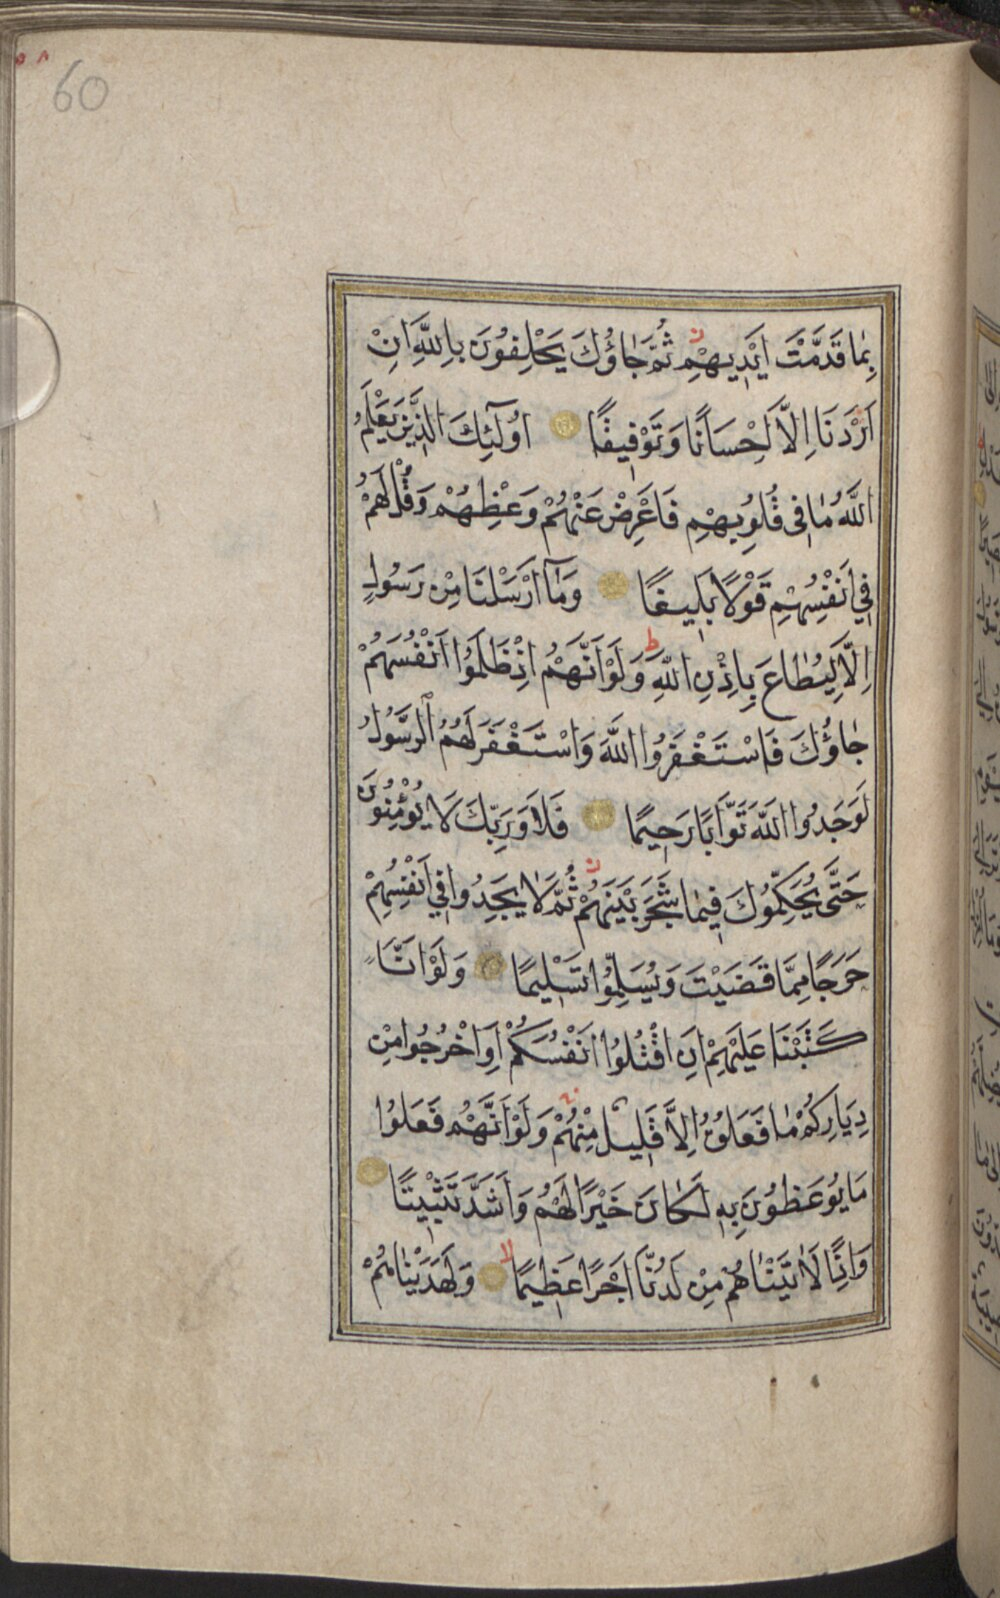 60
بِمَا قَدَّمَتْ اَيْدِيهِمْ ثُمَّ جَاؤُكَ يَحْلِفُونَ بِاللّٰهِ اِنْ
اَرَدْنَا اِلَّا اِحْسَانًا وَتَوْفِيقًا اُولٰٓئِكَ الَّذِينَ يَعْلَمُ
اللّٰهُ مَا فِى قُلُوبِهِمْ فَاَعْرِضْ عَنْهُمْ وَعِظْهُمْ وَقُلْ لَهُمْ
فِى اَنْفُسِهِمْ قَوْلًا بَلِيغًا وَمَآ اَرْسَلْنَا مِنْ رَسُولٍ
اِلَّا لِيُطَاعَ بِاِذْنِ اللّٰهِ وَلَوْ اَنَّهُمْ اِذْ ظَلَمُوا اَنْفُسَهُمْ
جَاؤُكَ فَاسْتَغْفَرُوا اللّٰهَ وَاسْتَغْفَرَ لَهُمُ الرَّسُولُ
لَوَجَدُوا اللّٰهَ تَوَّابًا رَحِيمًا فَلَا وَرَبِّكَ لَا يُؤْمِنُونَ
حَتّٰى يُحَكِّمُوكَ فِيمَا شَجَرَ بَيْنَهُمْ ثُمَّ لَا يَجِدُوا فِى اَنْفُسِهِمْ
حَرَجًا مِمَّا قَضَيْتَ وَيُسَلِّمُوا تَسْلِيمًا وَلَوْ اَنَّا
كَتَبْنَا عَلَيْهِمْ اَنِ اقْتُلُوا اَنْفُسَكُمْ اَوِ اخْرُجُوا مِنْ
دِيَارِكُمْ مَا فَعَلُوهُ اِلَّا قَلِيلٌ مِنْهُمْ وَلَوْ اَنَّهُمْ فَعَلُوا
مَا يُوعَظُونَ بِهِ لَكَانَ خَيْرًا لَهُمْ وَاَشَدَّ تَثْبِيتًا
وَاِذًا لَاٰتَيْنَاهُمْ مِنْ لَدُنَّا اَجْرًا عَظِيمًا وَلَهَدَيْنَاهُمْ